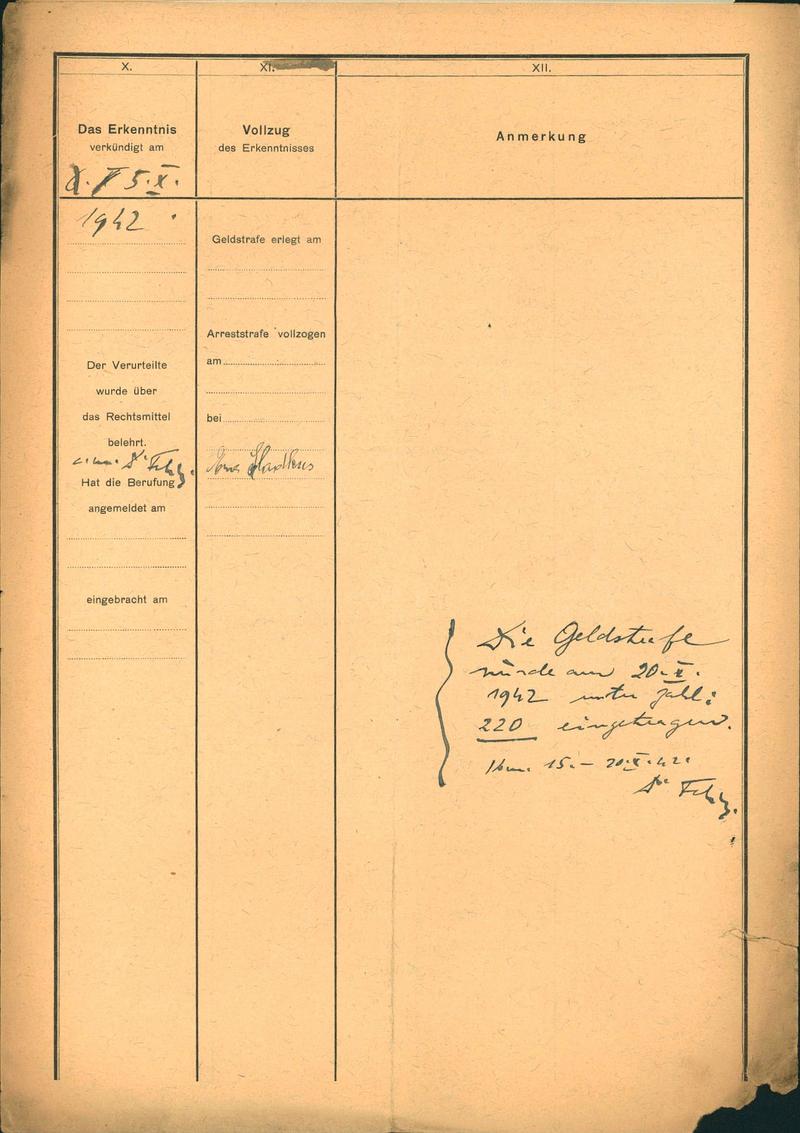 X.
Das Erkenntnis
verkündigt am
5.X.
1942
Der Verurteilte
wurde über
das Rechtsmittel
belehrt.
Hat die Berufung
angemeldet am
eingebracht am
XI.
Vollzug
des Erkenntnisses
Geldstrafe erlegt am
Arreststrafe vollzogen
am
bei
XII.
Anmerkung
Die Geldstrafe
wurde am 20.X.
1942 unter Zahl:
220 eingetragen.
15.– 20.X.42.
Dr